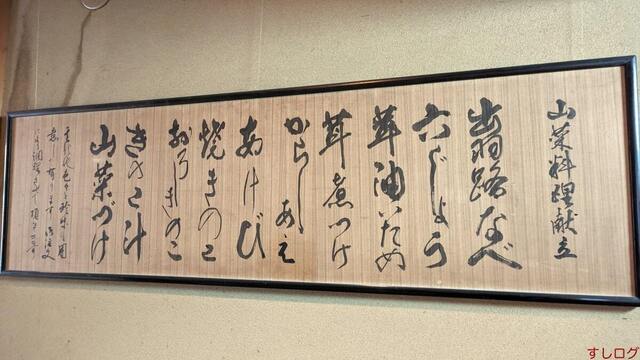 山菜料理献立
出羽路なべ
六じょう
茸油いため
茸煮つけ
からしあえ
あけび
焼きのこ
おろしきのこ
きのこ汁
山菜づけ
すしログ